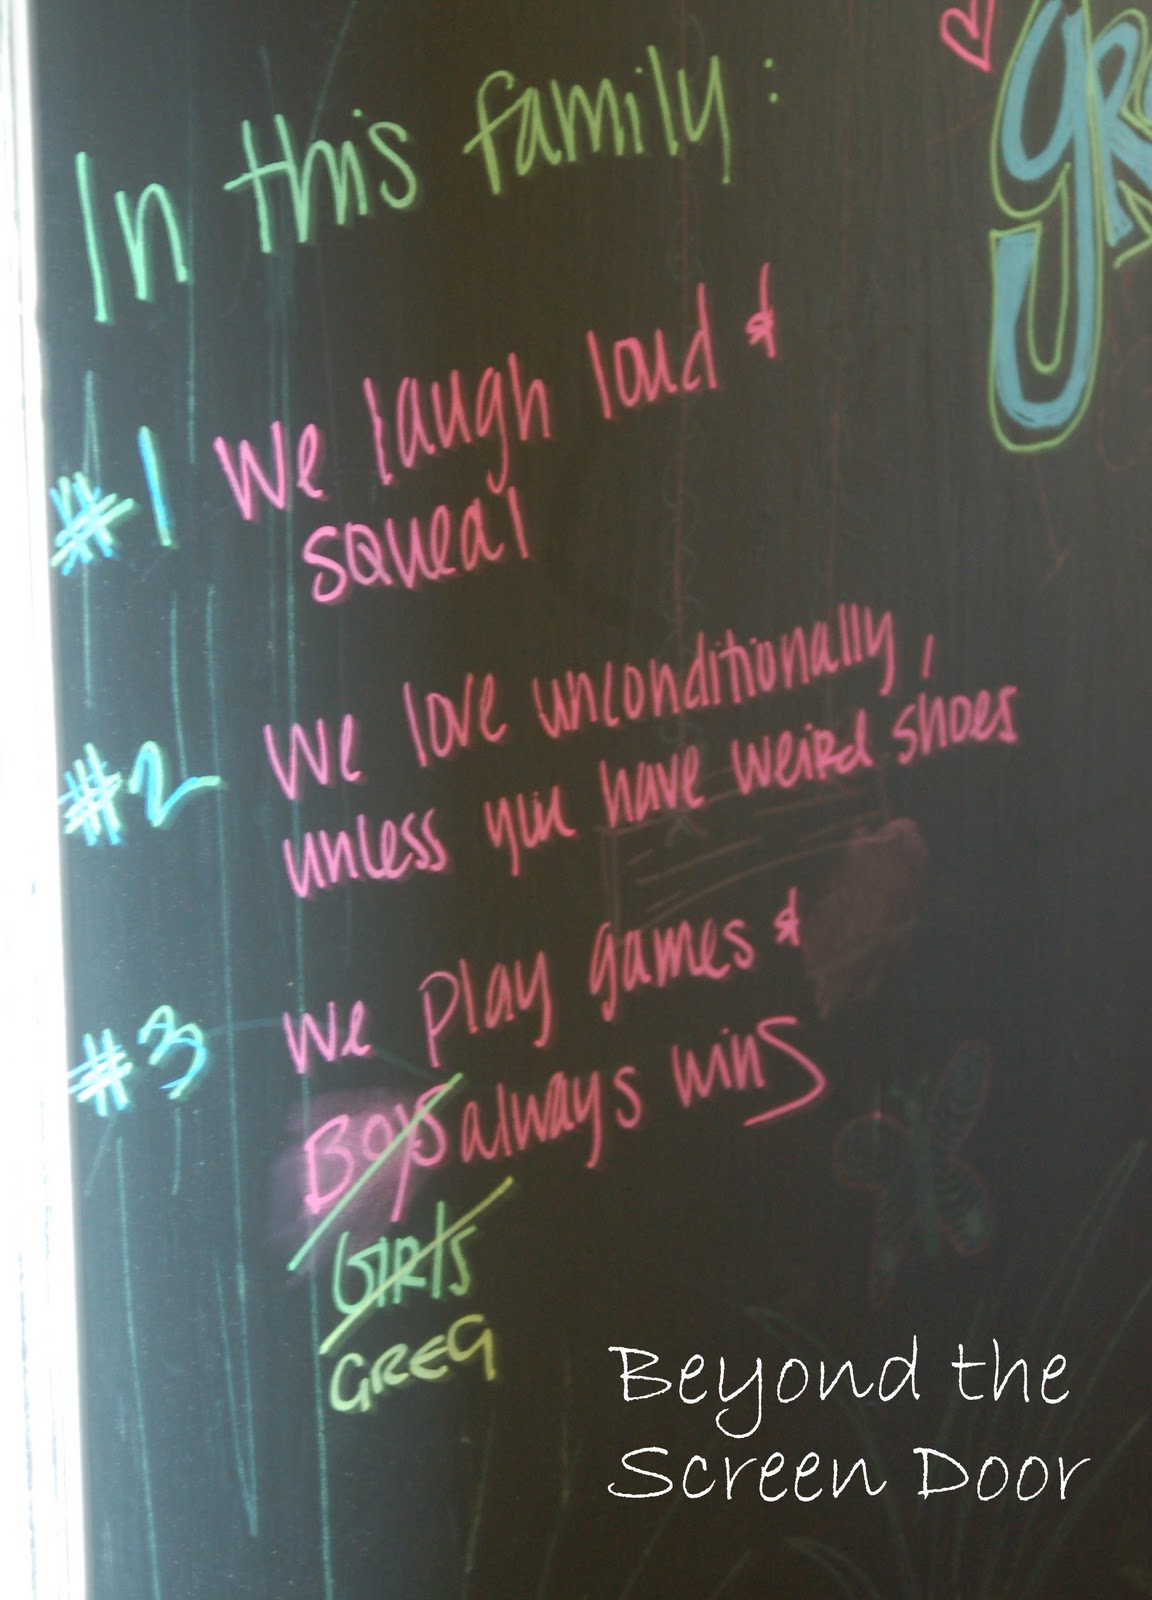 In this family:
#1 We laugh loud &
squeal
#2 We love unconditionally,
unless you have weird shoes
#3 We play games &
BOYS always wins
GIRLS
GREG
Beyond the
Screen Door